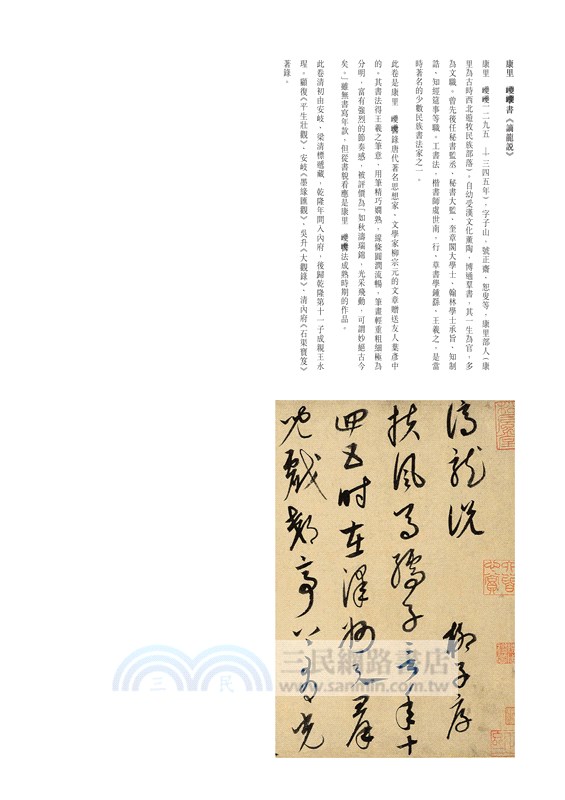 康里巎巎書《謫龍說》
康里巎巎(一二九五—一三四五年),字子山,號正齋、恕叟等,康里部人(康
里為古時西北遊牧民族部落)。自幼受漢文化薰陶,博通群書,其一生為官,多
為文職。曾先後任秘書監丞、秘書大監、奎章閣大學士、翰林學士承旨、知制
誥、知經筵事等職。工書法,楷書師虞世南,行、草書學鍾繇、王羲之,是當
時著名的少數民族書法家之一。
此卷是康里巎巎書錄唐代著名思想家、文學家柳宗元的文章贈送友人葉彥中
的。其書法得王羲之筆意,用筆精巧嫻熟,線條圓潤流暢,筆畫輕重粗細極為
分明,富有強烈的節奏感,被評價為「如秋濤瑞錦,光采飛動,可謂妙絕古今
矣。」雖無書寫年款,但從書貌看應是康里巎巎書法成熟時期的作品。
此卷清初由安岐、梁清標遞藏,乾隆年間入內府,後歸乾隆第十一子成親王永
瑆。顧復《平生壯觀》、安岐《墨緣匯觀》、吳升《大觀錄》、清內府《石渠寶笈》
著錄。
謫龍說 柳子厚
扶風馬孺子言年十
四五時在澤州與群
兒戲郊亭上有光
三民網路書店
www.sanmin.com.tw
三 民